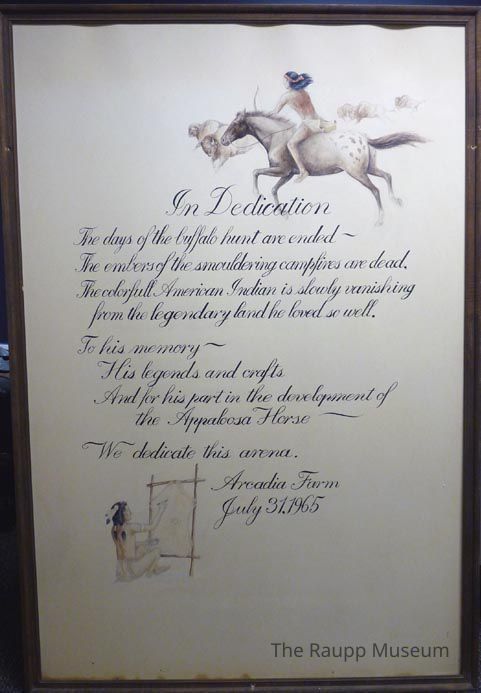 In Dedication
The days of the buffalo hunt are ended ~
The embers of the smouldering campfires are dead.
The colorfull American Indian is slowly vanishing
from the legendary land he loved so well.
To his memory ~
His legends and crafts
And for his part in the development of
the Appaloosa Horse ~
We dedicate this arena.
Arcadia Farm
July 31, 1965
The Raupp Museum